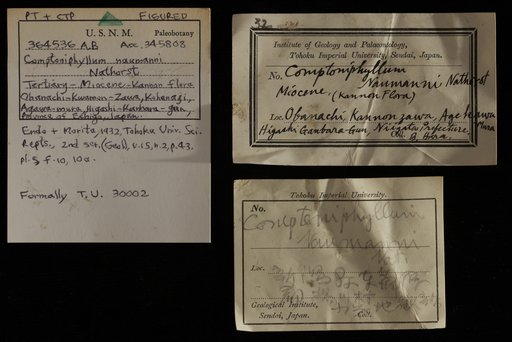 PT + CTP FIGURED
U. S. N. M. Paleobotany
364536 A,B Acc. 345808
Comptoniphyllum naumanni
Nathorst
Tertiary-Miocene-Kannon flora
Obanachi-Kwannon-Zawa, Kohanagi,
Agawa-mura, Higashi-Kanbara-gun,
Province of Echigo, Japan.
Endo + Morita, 1932, Tohoku Univ. Sci.
Repts., 2nd ser. (Geol), v.15, n.2, p.43,
pl.5 f.10, 10a.
Formally T. U. 30002
32
Institute of Geology and Palaeontology,
Tohoku Imperial University, Sendai, Japan.
No. Comptoniphyllum
Naumanni Nathorst
Miocene. (Kannon Flora)
Loc. Obanachi, Kannonzawa, Agekawa Mura
Higashi Ganbara-Gun, Niigata Prefecture
Coll.
Tohoku Imperial University.
No.
Comptoniphyllum
naumanni
Nath.
Loc.
Geological Institute,
Sendai, Japan. Coll.